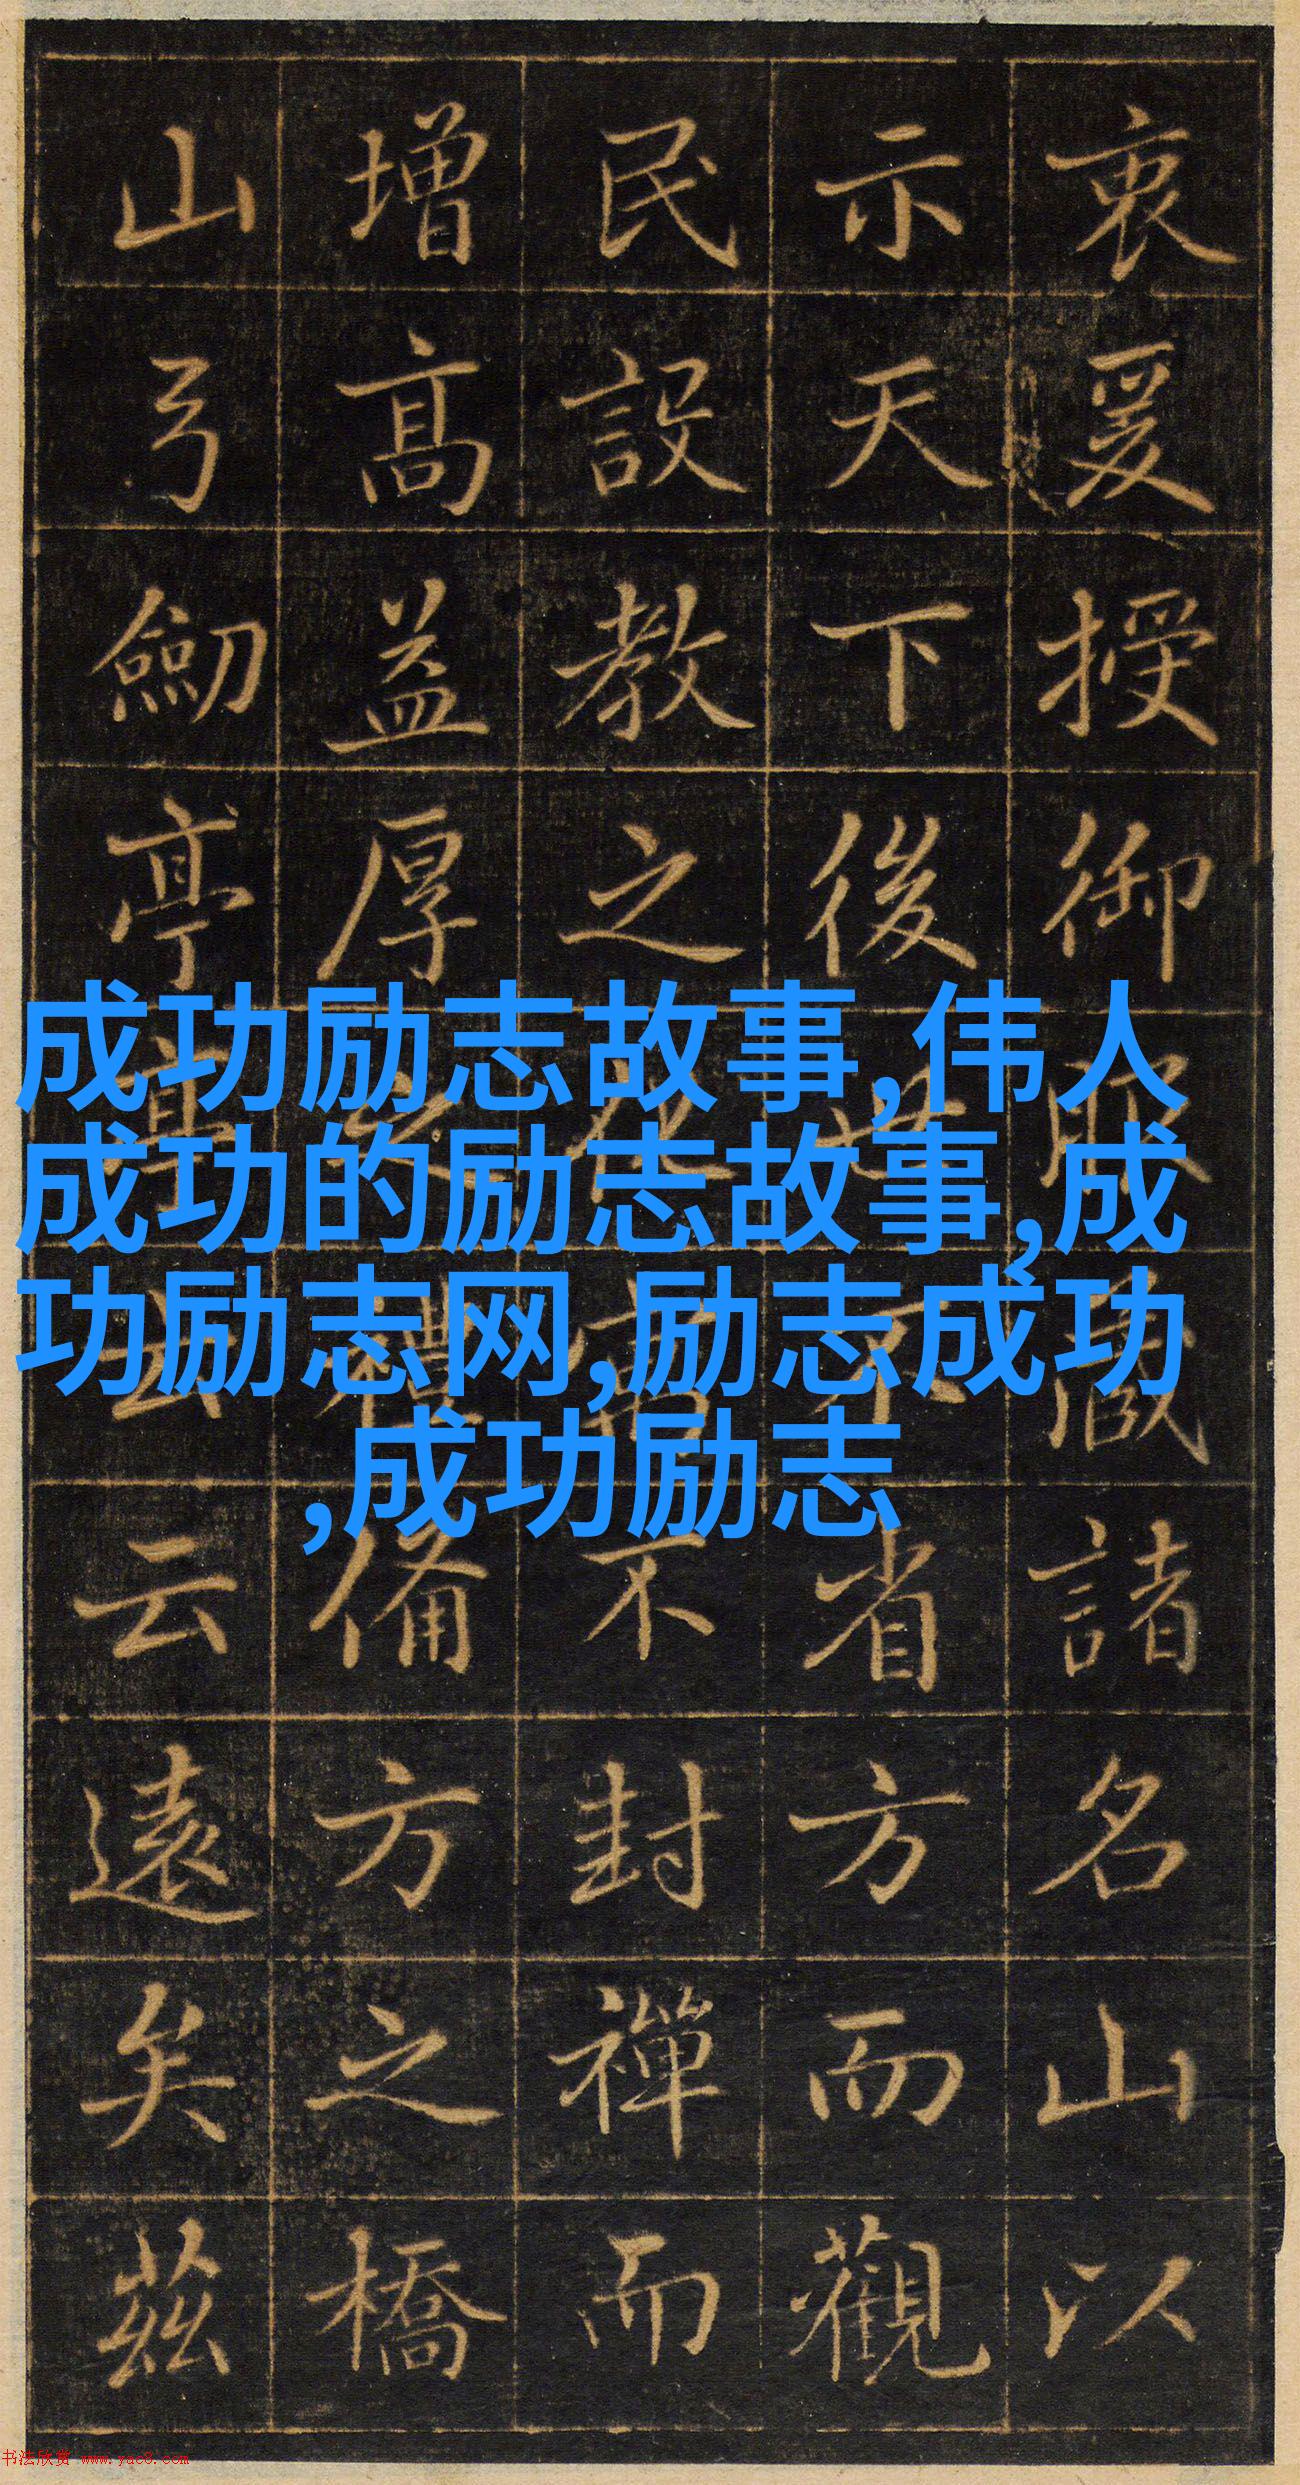 衷爰授御藏諸名山以
示天下後世不省方而觀
民設教之不封禪而
增高益厚之禮備方之橋
山弓劒亭亭云云遠矣茲
成功励志故事,伟人
成功的励志故事,成
功励志网,励志成功
,成功励志
书法欣赏 www.yac8.com